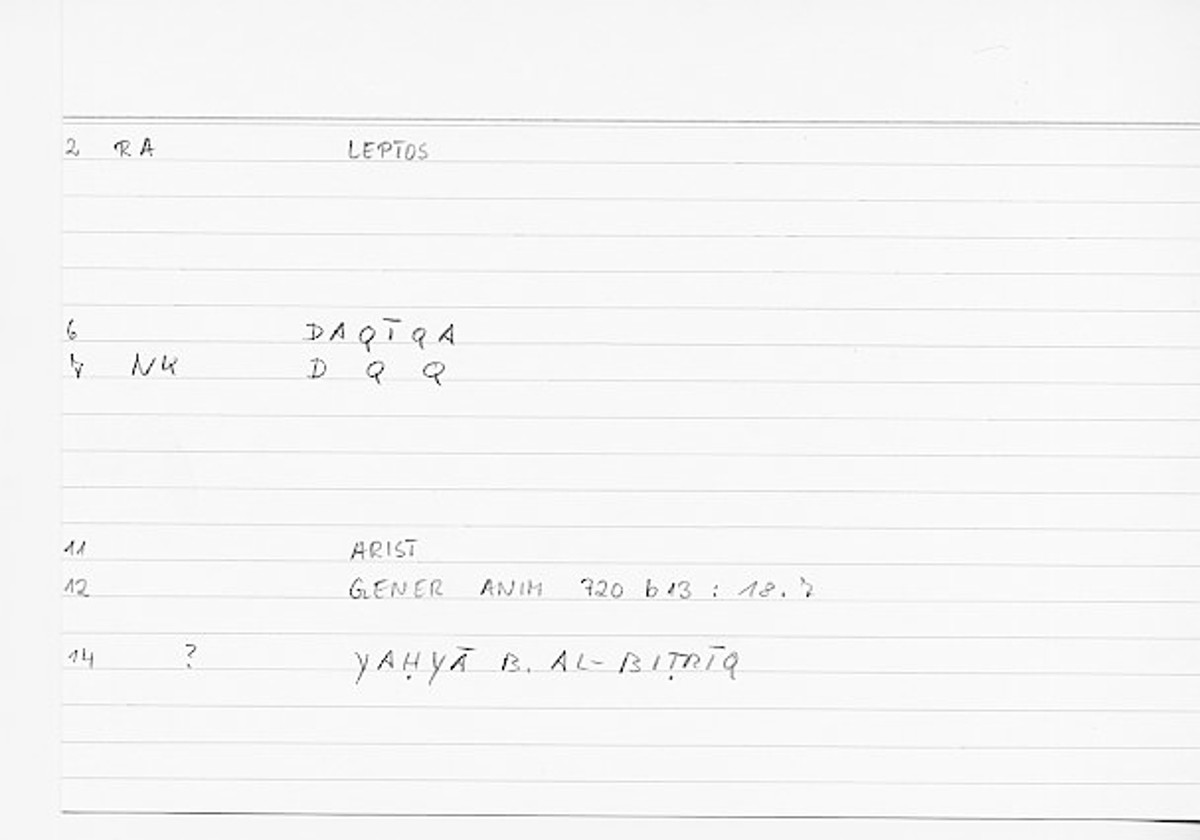 2 RA LEPTOS
6 DAQĪQA
7 NK D Q Q
11 ARIST
12 GENER ANIM 720 b 13 : 18.7
14 ? YAḤYĀ B. AL-BIṬRĪQ